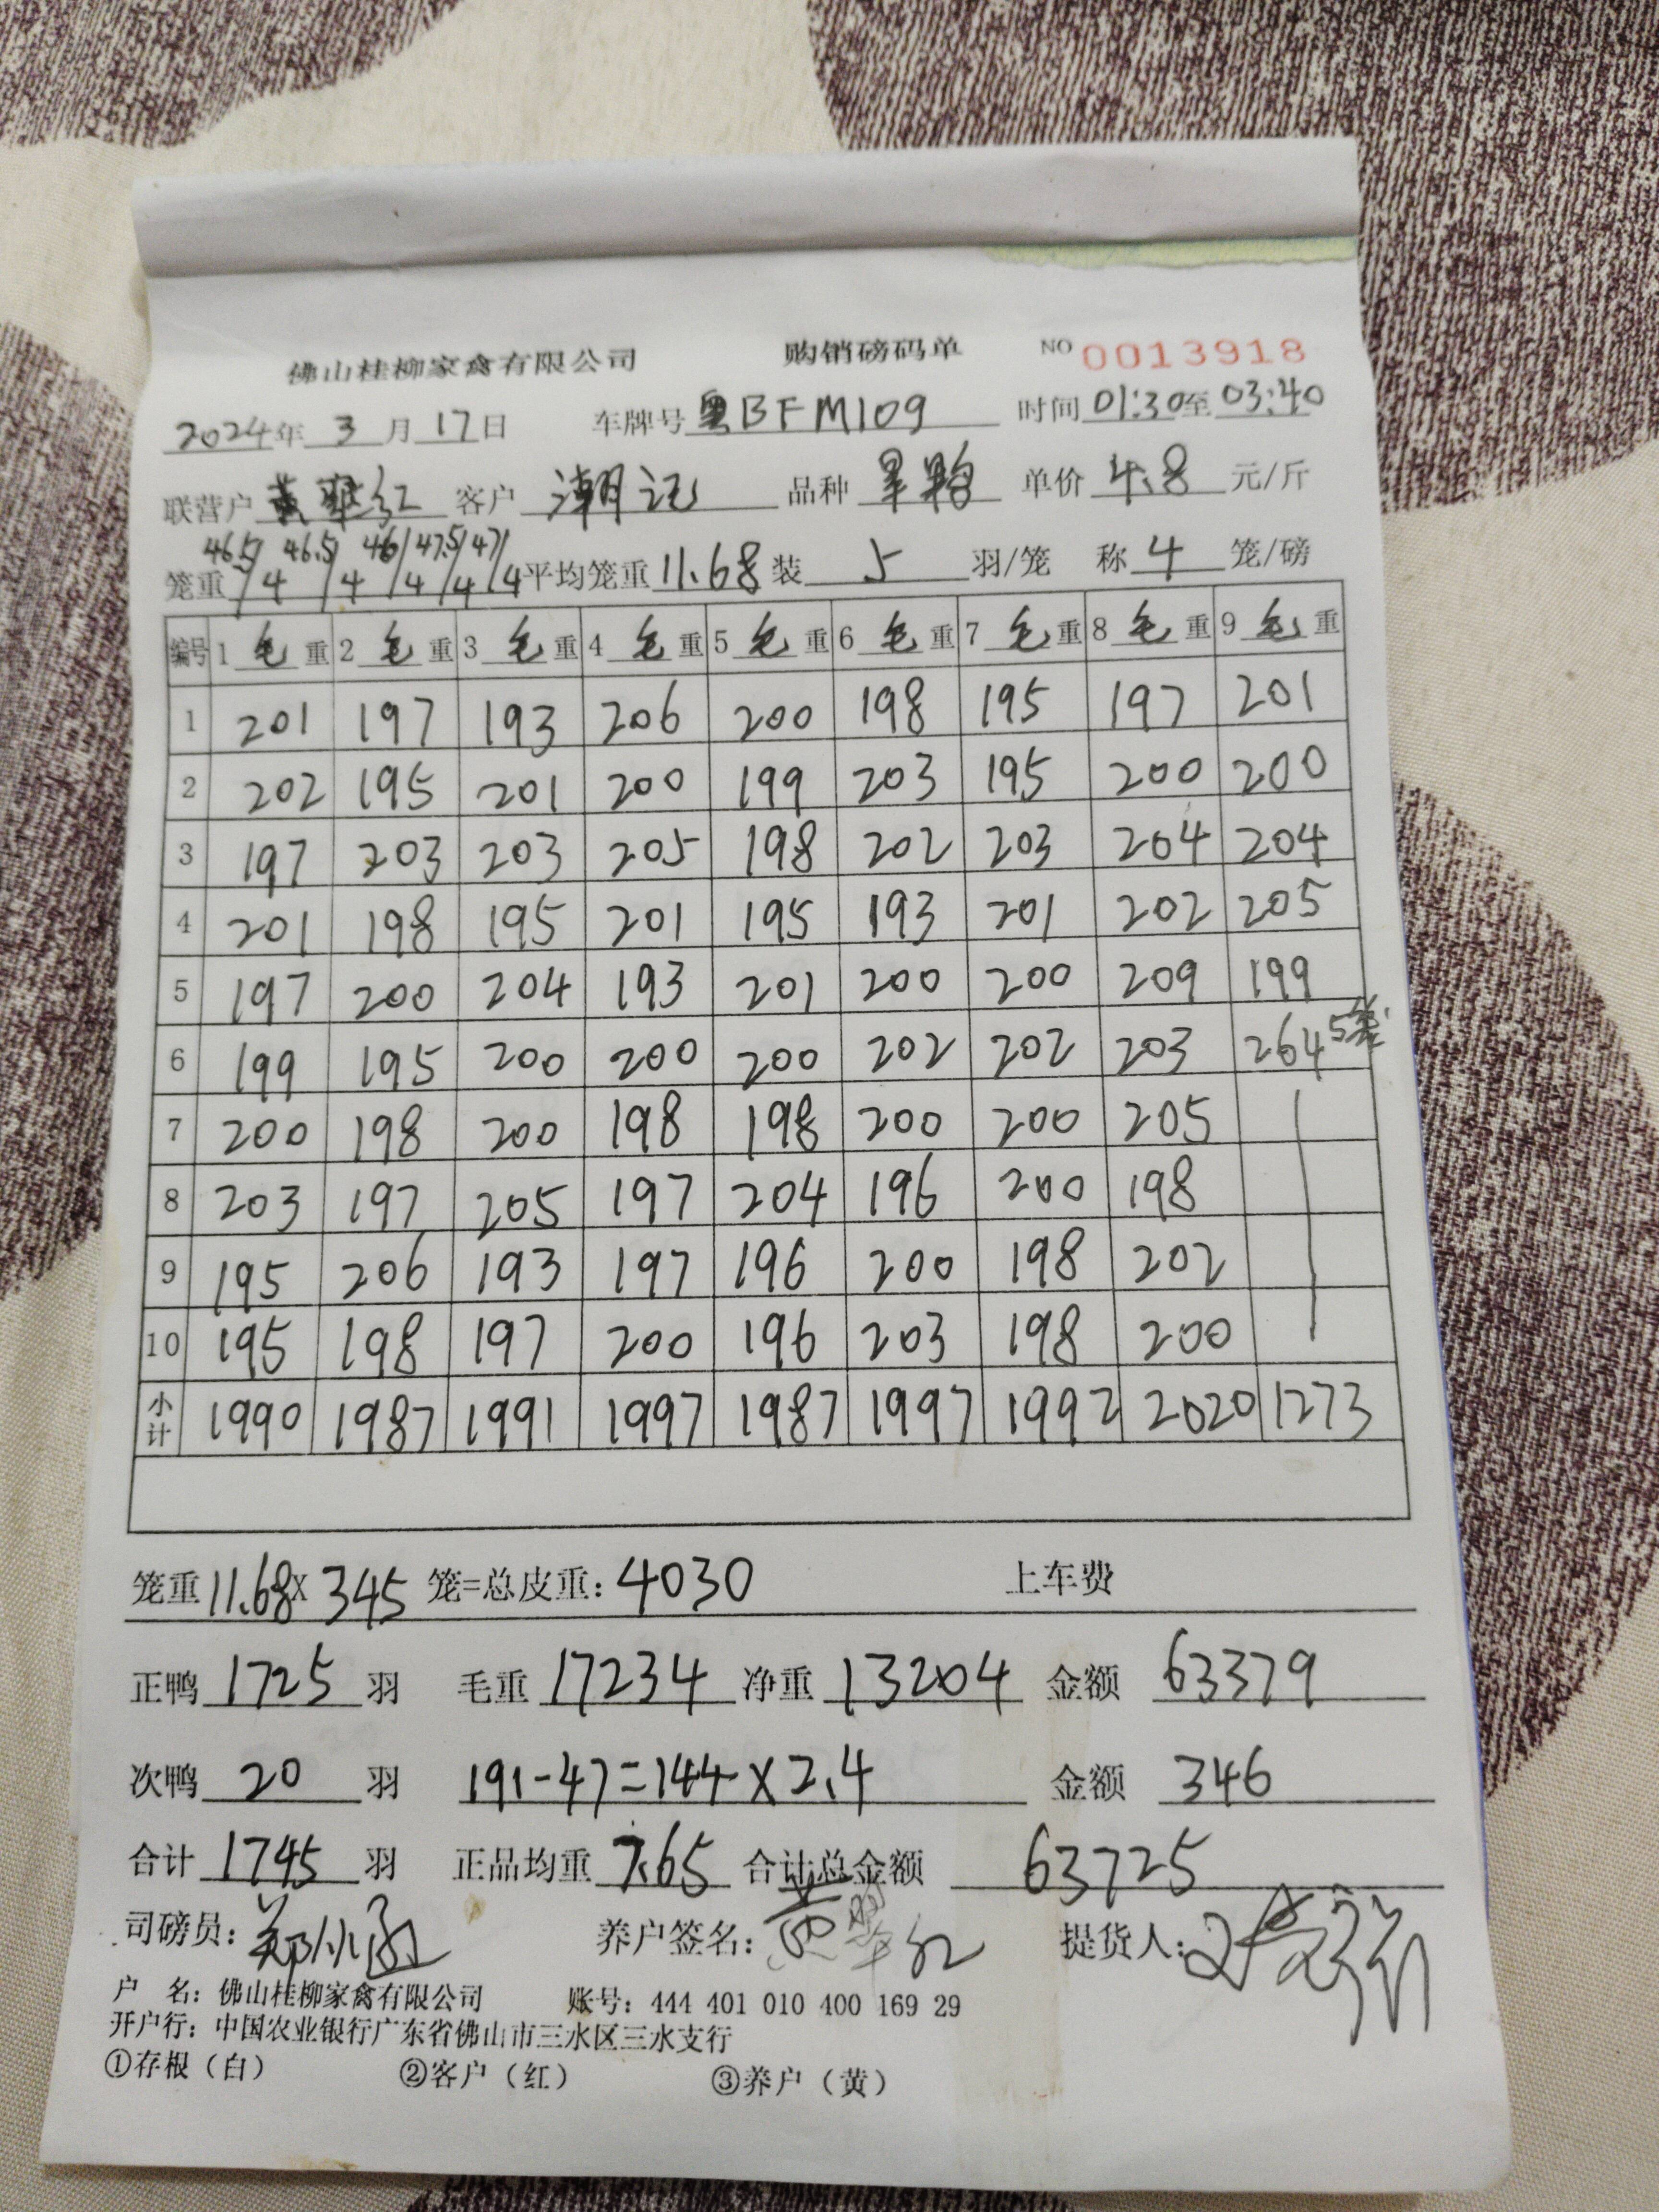 佛山桂柳家禽有限公司 购销磅码单 NO 0013918
2024年 3 月 17 日 车牌号 粤BFM109 时间 01:30 至 03:40
联营户 黄翠红 客户 潮记 品种 单价 4.8 元/斤
笼重 46.5/4 46.5/4 46/4 47.5/4 47/4 平均笼重 11.68 装 5 羽/笼 称 4 笼/磅
编号 1 毛 重 2 毛 重 3 毛 重 4 毛 重 5 毛 重 6 毛 重 7 毛 重 8 毛 重 9 毛 重
1 201 197 193 206 200 198 195 197 201
2 202 195 201 200 199 203 195 200 200
3 197 203 203 205 198 202 203 204 204
4 201 198 195 201 195 193 201 202 205
5 197 200 204 193 201 200 200 209 199
6 199 195 200 200 200 202 202 203 264 5笼
7 200 198 200 198 198 200 200 205
8 203 197 205 197 204 196 200 198
9 195 206 193 197 196 200 198 202
10 195 198 197 200 196 203 198 200
小计 1990 1987 1991 1997 1987 1997 1992 2020 1273
笼重 11.68 X 345 笼=总皮重: 4030 上车费
正鸭 1725 羽 毛重 17234 净重 13204 金额 63379
次鸭 20 羽 191-47=144X2.4 金额 346
合计 1745 羽 正品均重 7.65 合计总金额 63725
司磅员: 郑小函 养户签名: 黄翠红 提货人:
户 名: 佛山桂柳家禽有限公司 账号: 444 401 010 400 169 29
开户行: 中国农业银行广东省佛山市三水区三水支行
①存根（白） ②客户（红） ③养户（黄）